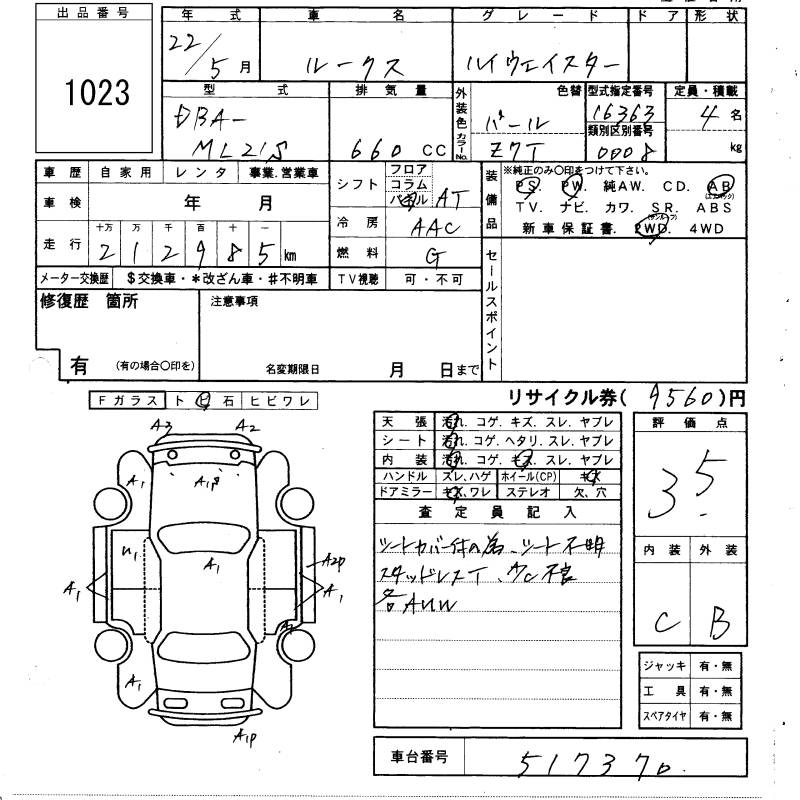 出品番号
1023
年式
22/5月
車名
ルークス
グレード
ハイウェイスター
ドア
形状
型式
DBA-
ML21S
排気量
660 CC
外装色
カラーNo.
色替
パール
Z7T
型式指定番号
16363
類別区別番号
0008
定員・積載
4名
kg
車歴
自家用
レンタ
事業.営業車
車検
年 月
走行
十万 万 千 百 十 一
2 1 2 9 8 5 km
メーター交換歴
$交換車・*改ざん車・#不明車
シフト
フロア
コラム
AT
冷房
AAC
燃料
G
TV視聴
可・不可
装備品
※純正のみ○印をつけて下さい。
PS. PW. 純AW. CD. AB
(エアバック)
TV. ナビ. カワ. SR. ABS
(サンルーフ)
新車保証書. 2WD. 4WD
セールスポイント
修復歴 箇所
有 (有の場合○印を)
注意事項
名変期限日 月 日まで
リサイクル券( 9560 )円
Fガラス ト ビ 石 ヒビワレ
A3 A2
A1 A1P A1
U1 A1 A2P
A1 A1
A1
A1P
天張 汚れ. コゲ. キズ. スレ. ヤブレ
シート 汚れ. コゲ. ヘタリ. スレ. ヤブレ
内装 汚れ. コゲ. キズ. スレ. ヤブレ
ハンドル スレ,ハゲ ホイール(CP) キズ
ドアミラー キズ,ワレ ステレオ 欠、穴
査定員記入
シートカバー付の為、シート不明
スタッドレスT、
各AUW
評価点
3.5
内装 外装
C B
ジャッキ 有・無
工具 有・無
スペアタイヤ 有・無
車台番号
517370